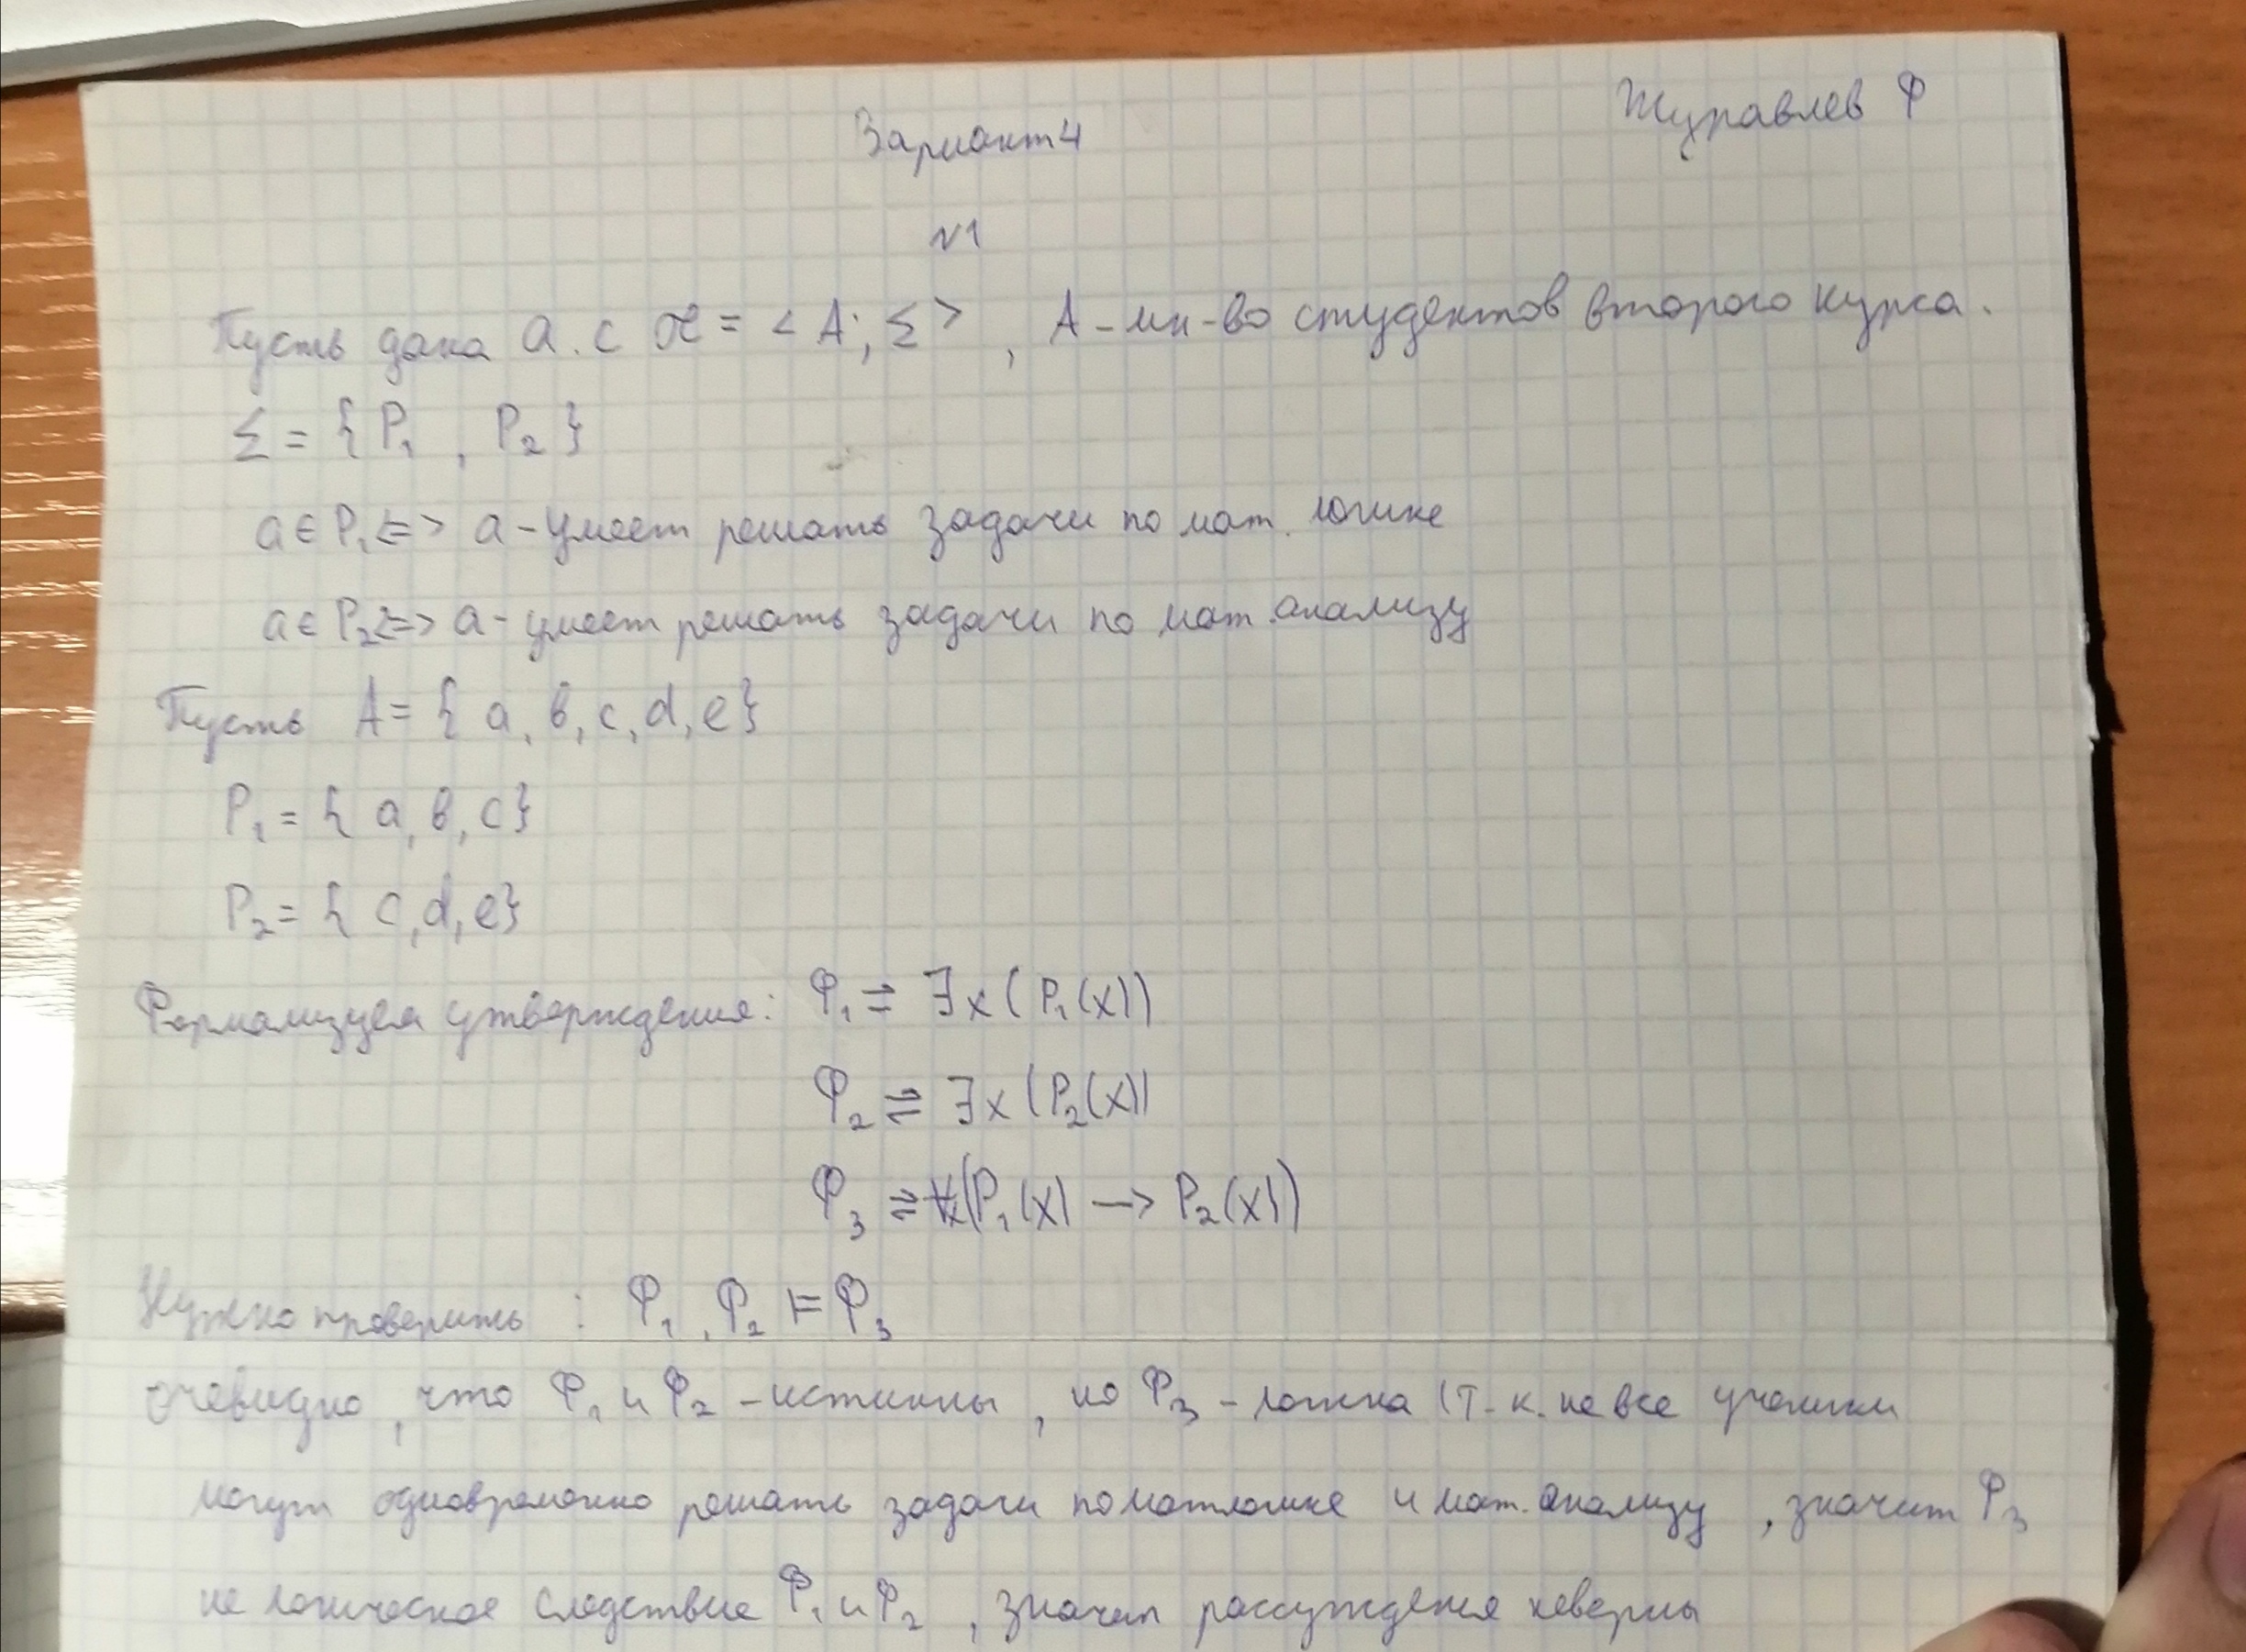 Вариант 4
Журавлев Ф
№1
Пусть дана а.с 𝔄 = <A; Σ>, А - мн-во студентов второго курса.
Σ = { P₁, P₂ }
a ∈ P₁ <=> a - умеет решать задачи по мат. логике
a ∈ P₂ <=> a - умеет решать задачи по мат. анализу
Пусть A = { a, b, c, d, e }
P₁ = { a, b, c }
P₂ = { c, d, e }
Формализуем утверждения: Ф₁ ⇌ ∃x (P₁(x))
Ф₂ ⇌ ∃x (P₂(x))
Ф₃ ⇌ ∀x(P₁(x) → P₂(x))
Нужно проверить: Ф₁, Ф₂ ⊨ Ф₃
очевидно, что Ф₁ и Ф₂ - истинны, но Ф₃ - ложна (т.к. не все ученики
могут одновременно решать задачи по матлогике и мат. анализу, значит Ф₃
не логическое следствие Ф₁ и Ф₂, значит рассуждения неверны